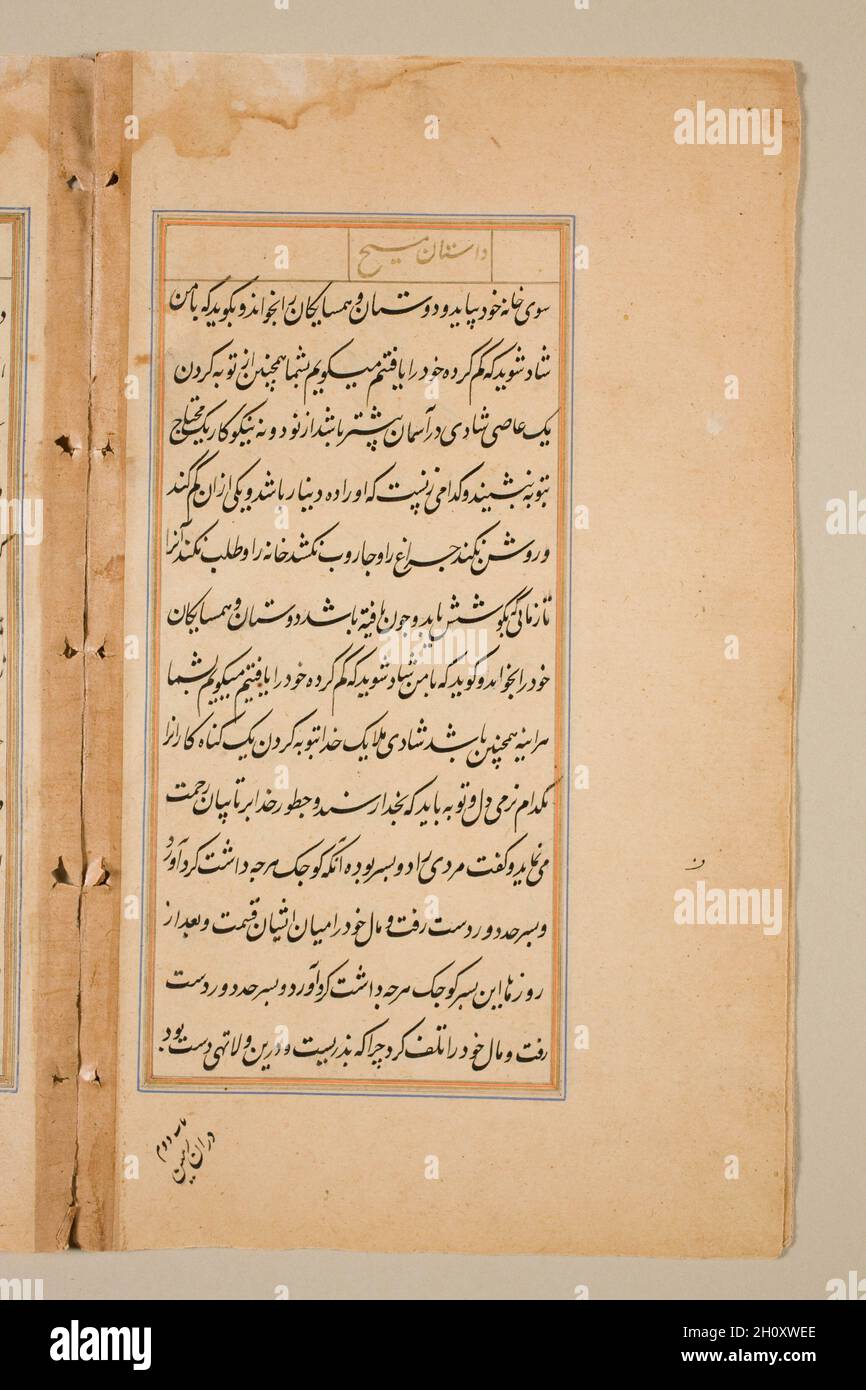 داستان مسیح
سوی خانه خود بیاید و دوستان و همسایکان را بخواند و بگوید که با من
شاد شوید که کم کرده خود را یافتم میکویم بشما همچنین از توبه کردن
یک عاصی شادی در آسمان پیشتر باشد از نود و نه نیکوکار یک محتاج
بتوبه نیشیند و کدام زنیست که او را ده دینار باشد و یکی از ان کم کند
و روشن نکند چراغ را و جاروب نکشد خانه را و طلب نکند آنرا
تا زمانی که بکوشش یابد و چون یافته باشد دوستان و همسایکان
خود را بخواند و کوید که با من شاد شوید که کم کرده خود را یافتم میکویم بشما
هراینه همچنین باشد شادی ملایک خدا بتوبه کردن یک کناه کار انرا
بکدام نرمی دل و توبه باید که بخدا رسند و چطور خدا بر تایبان رحمت
می نماید و کفت مردی را دو پسر بوده آنکه کوچک هرچه داشت کرد آورد
و بسرحد دوردست رفت و مال خود را میان ایشان قسمت و بعد از
روزها این پسر کوچک هرچه داشت کرد آورد و بسرحد دوردست
رفت و مال خود را تلف کرد چرا که بد زیست و درین ولا تهی دست بود
ن
در ان زمین
alamy
alamy
alamy
alamy
a
a
a
a
a
a
a
a
alamy
Image ID: 2H0XWEE
www.alamy.com